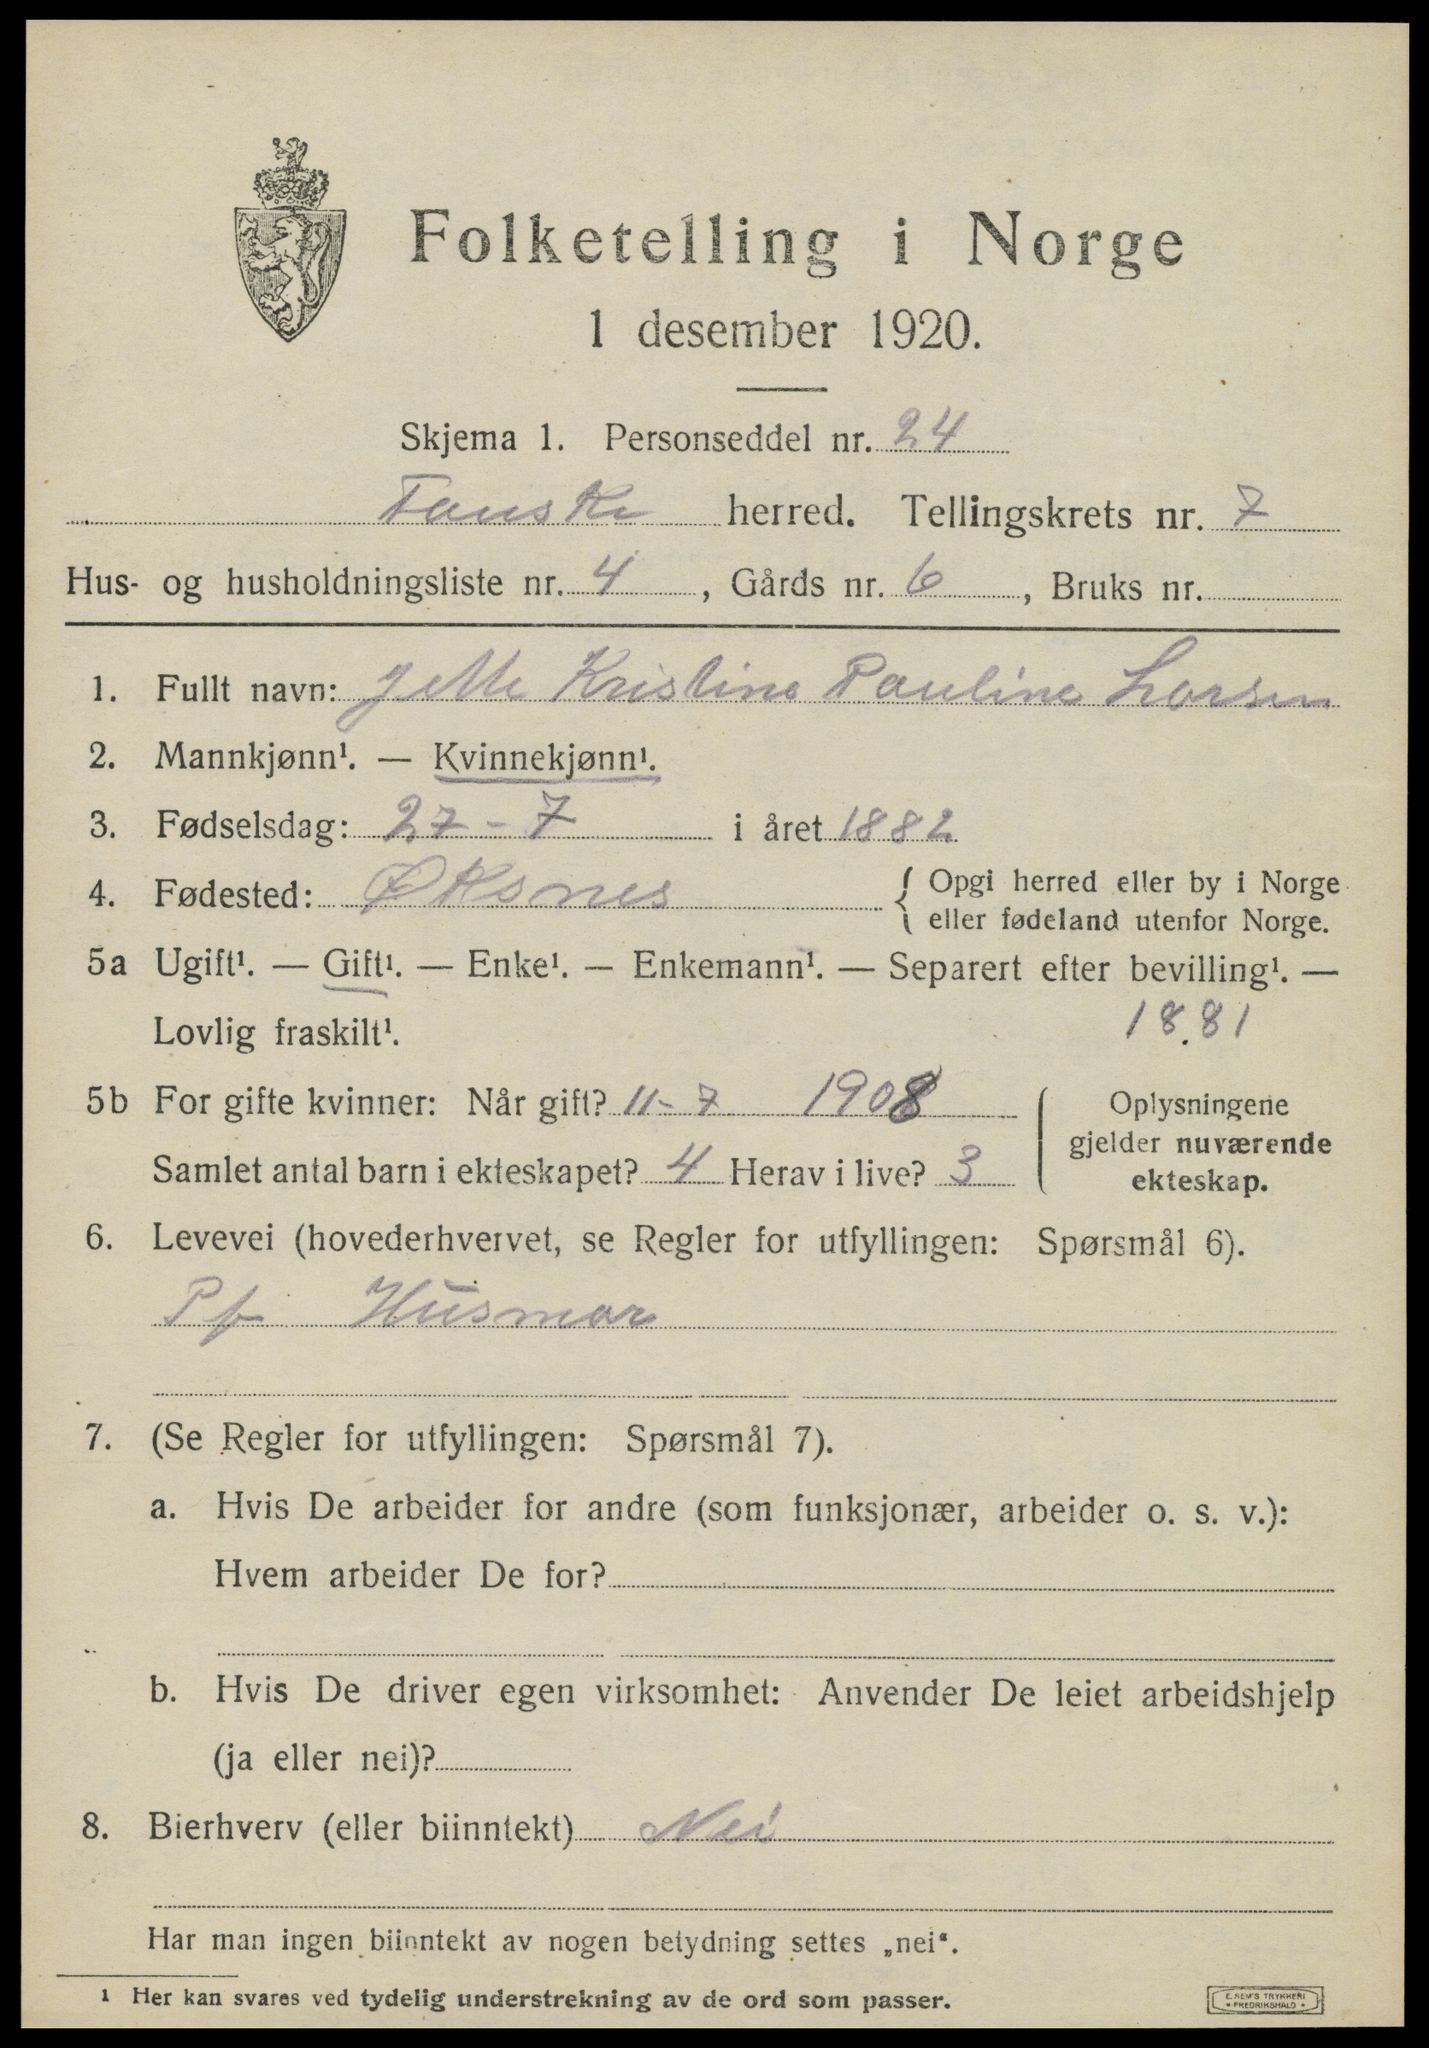 Folketelling i Norge
1 desember 1920.
Skjema 1. Personseddel nr. 24
Fauske herred. Tellingskrets nr. 7
Hus- og husholdningsliste nr. 4, Gårds nr. 6, Bruks nr.
1. Fullt navn: Kristine Pauline Larsen
2. Mannkjønn¹. — Kvinnekjønn¹.
3. Fødselsdag: 27-7 i året 1882
4. Fødested: Øksnes { Opgi herred eller by i Norge
eller fødeland utenfor Norge.
5a Ugift¹. — Gift¹. — Enke¹. — Enkemann¹. — Separert efter bevilling¹. —
Lovlig fraskilt¹. 1881
5b For gifte kvinner: Når gift? 11-7 1908 Oplysningene
gjelder nuværende
Samlet antal barn i ekteskapet? 4 Herav i live? 3 ekteskap.
6. Levevei (hovederhvervet, se Regler for utfyllingen: Spørsmål 6).
Pf Husmor
7. (Se Regler for utfyllingen: Spørsmål 7).
a. Hvis De arbeider for andre (som funksjonær, arbeider o. s. v.):
Hvem arbeider De for?
b. Hvis De driver egen virksomhet: Anvender De leiet arbeidshjelp
(ja eller nei)?
8. Bierhverv (eller biinntekt) Nei
Har man ingen biinntekt av nogen betydning settes „nei“.
1 Her kan svares ved tydelig understrekning av de ord som passer.
E. SEM'S TRYKKERI
* FREDRIKSHALD *